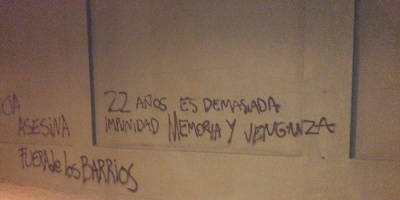 22 AÑOS ES DEMASIADA
IMPUNIDAD MEMORIA Y VENGANZA
ASESINA
FUERA de los BARRIOS